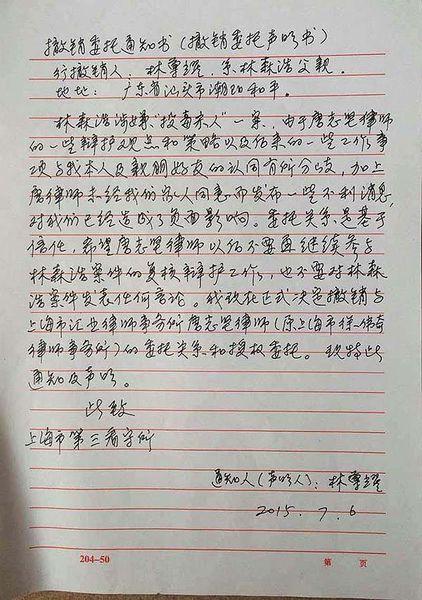 撤销委托通知书(撤销委托声明书)
行撤销人:林尊耀,系林森浩父亲。
地址:广东省汕头市潮阳和平。
林森浩涉嫌"投毒杀人"一案,由于唐志坚律师
的一些辩护观点和策略以及后来的一些工作事
项与我本人及亲朋好友的认同有所分歧,加上
唐律师未经我们家人同意而发布一些不利消息,
对我们已经造成了负面影响。委托关系是基于
信任,希望唐志坚律师以后不要再继续参与
林森浩案件的复核辩护工作,也不要对林森
浩案件发表任何言论。我现在正式决定撤销与
上海市汇业律师事务所唐志坚律师(原上海市徐伟奇
律师事务所)的委托关系和授权委托。现特此
通知及声明。
此致
上海市第三看守所
通知人(声明人):林尊耀
2015.7.6
204-50 第 页